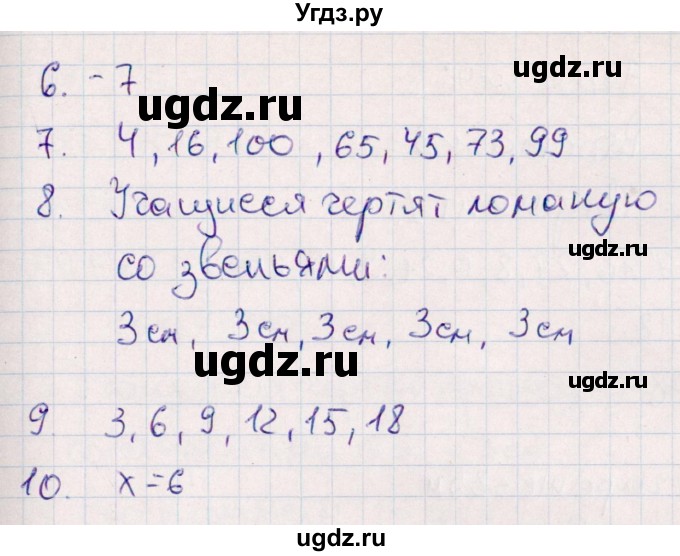 Угдз.ру
ugdz.ru
6. -7
ugdz.ru
7. 4, 16, 100, 65, 45, 73, 99
8. Учащиеся чертят ломаную
ugdz.ru
со звеньями:
3 см, 3 см, 3 см, 3 см, 3 см
ugdz.ru
ugdz.ru
9. 3, 6, 9, 12, 15, 18
10. x = 6
ugdz.ru
ugdz.ru